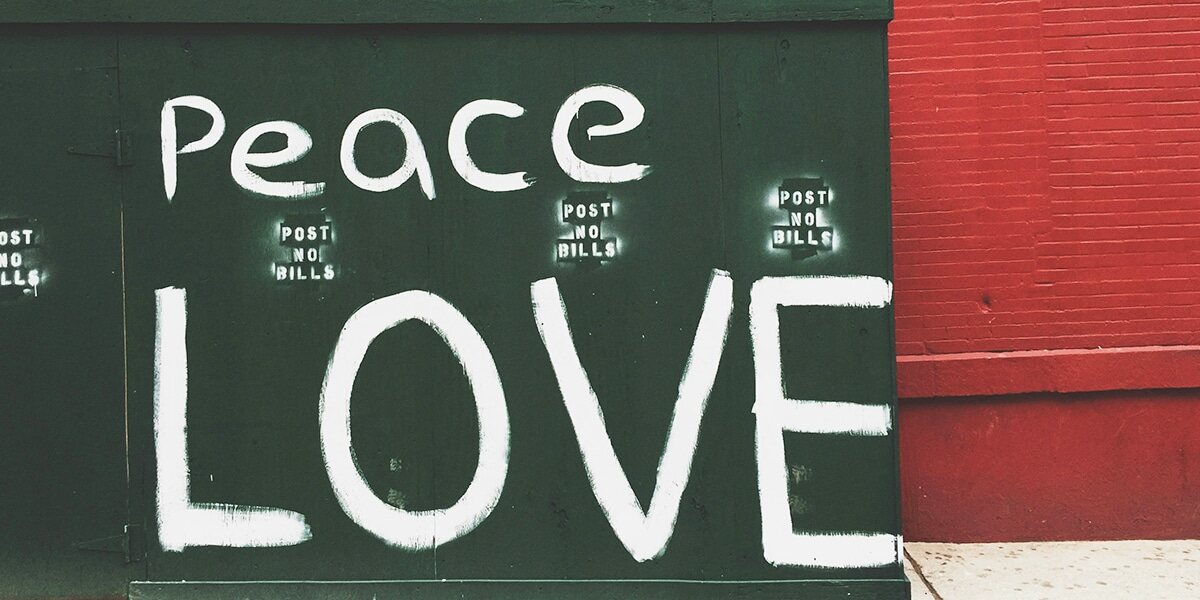 Peace
POST
NO
BILLS
POST
NO
BILLS
POST
NO
BILLS
OST
NO
LLS
LOVE